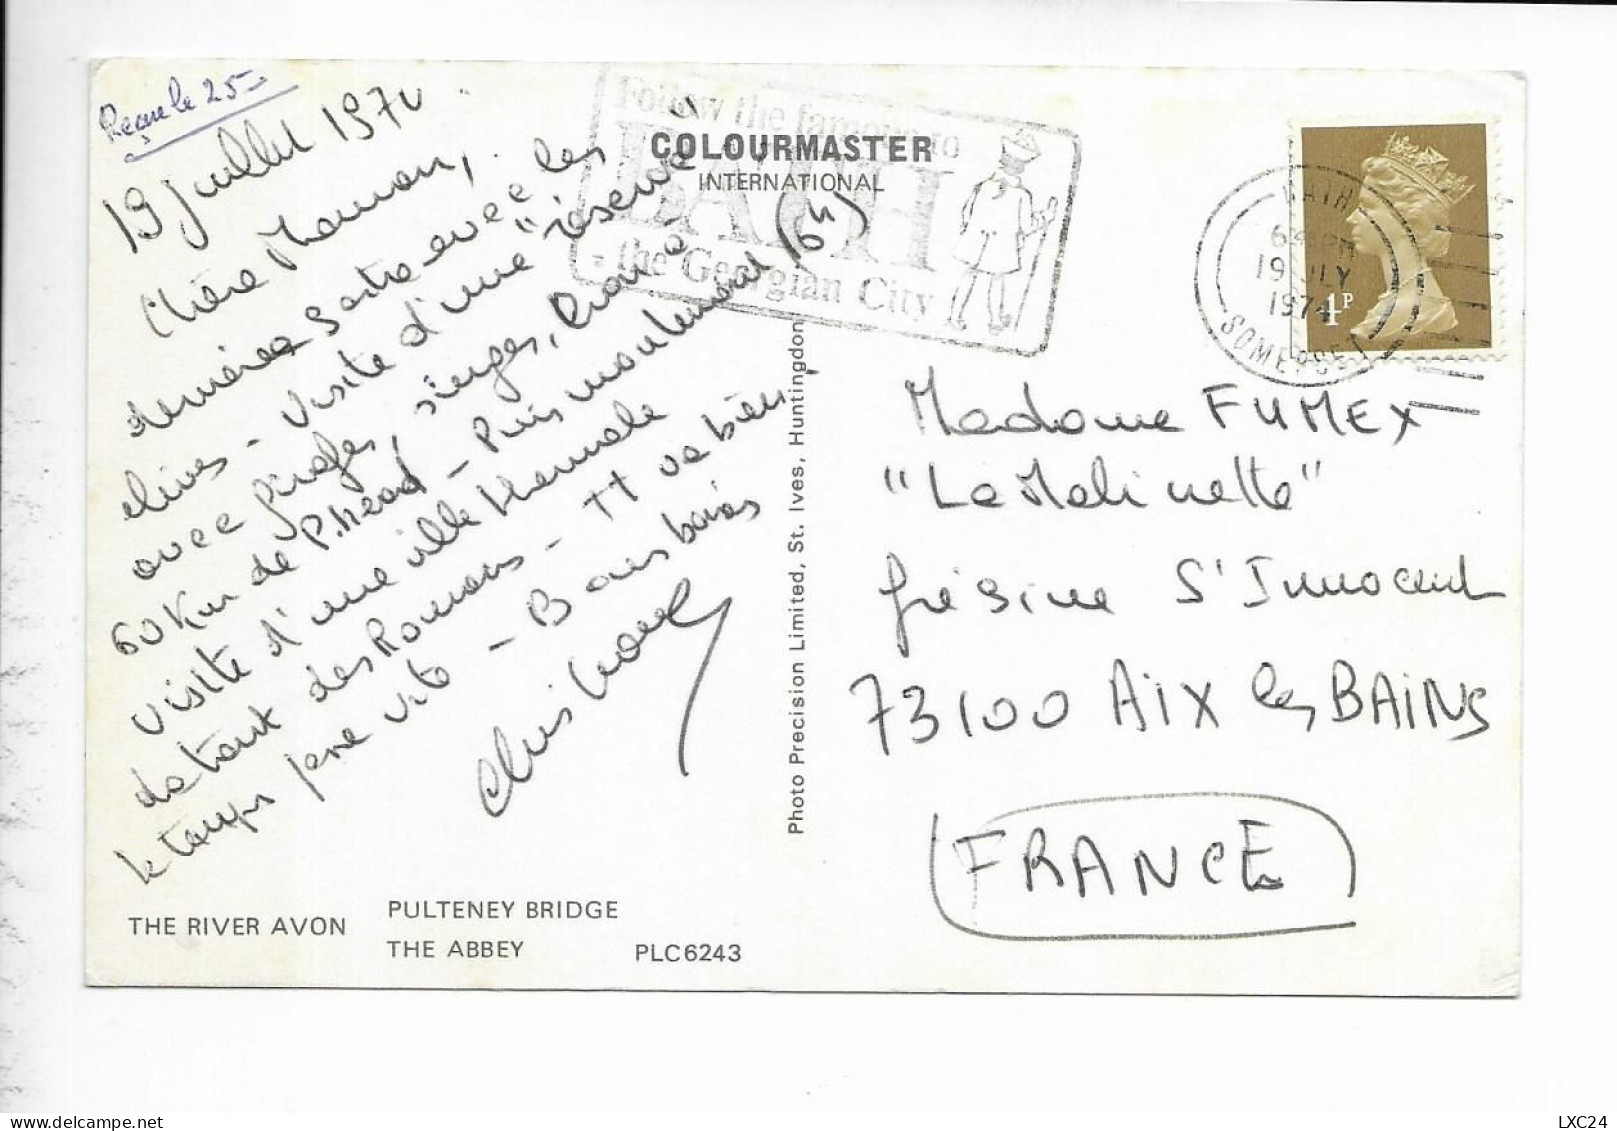 Reçue le 25-
19 Juillet 1974
Chère Maman,
dernière sortie avec les
élèves - Visite d'une "réserve"
avec girafes, singes, lions à
60 Km de P.Head - Puis maintenant (6H)
visite d'une ville thermale
datant des Romains - Tt va bien,
le temps passe vite - Bons baisers
Christiane
THE RIVER AVON
PULTENEY BRIDGE
THE ABBEY
PLC6243
COLOURMASTER
INTERNATIONAL
Photo Precision Limited, St. Ives, Huntingdon
Follow the famous to
BATH
- the Georgian City
BATH
PM
19 JLY
1974
SOMERSET
4P
Madame FUMEX
"La Malinette"
Grésine St Innocent
73100 AIX les BAINS
FRANCE
LXC24